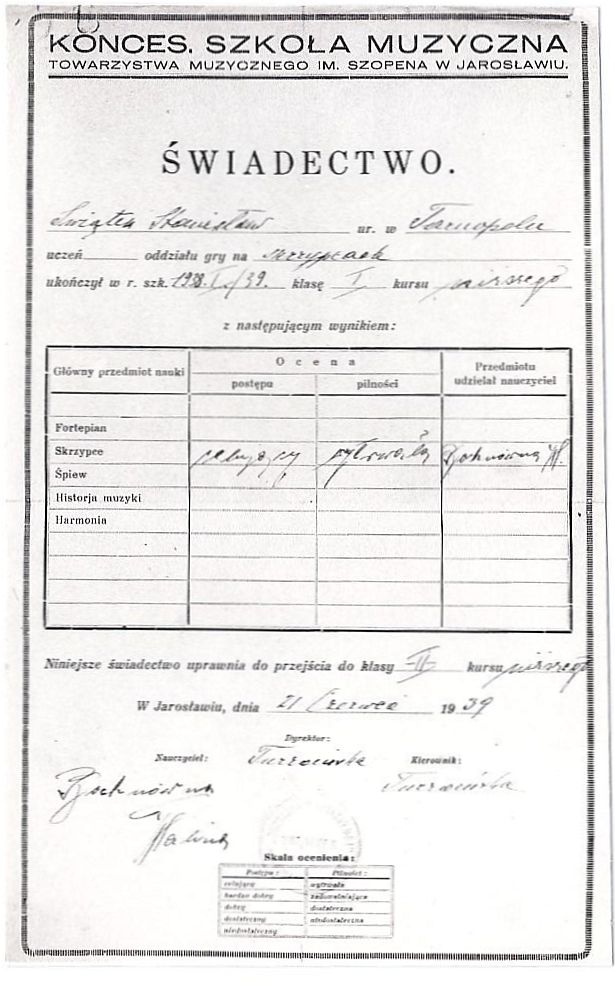 KONCES. SZKOŁA MUZYCZNA
TOWARZYSTWA MUZYCZNEGO IM. SZOPENA W JAROSŁAWIU.
ŚWIADECTWO.
Świątek Stanisław ur. w Tarnopolu
uczeń oddziału gry na skrzypcach
ukończył w r. szk. 1938/39. klasę I kursu niższego
z następującym wynikiem:
Główny przedmiot nauki Ocena Przedmiotu udzielał nauczyciel
postępu pilności
Fortepian
Skrzypce celujący wytrwała Bochnówna H.
Śpiew
Historja muzyki
Harmonia
Niniejsze świadectwo uprawnia do przejścia do klasy II kursu niższego
W Jarosławiu, dnia 21 Czerwca 1939
Dyrektor:
Nauczyciel: Turzańska Kierownik:
Bochnówna Turzańska
Halina
Skala ocenienia:
Postępu: Pilności:
celujący wytrwała
bardzo dobry zadowalniająca
dobry dostateczna
dostateczny niedostateczna
niedostateczny